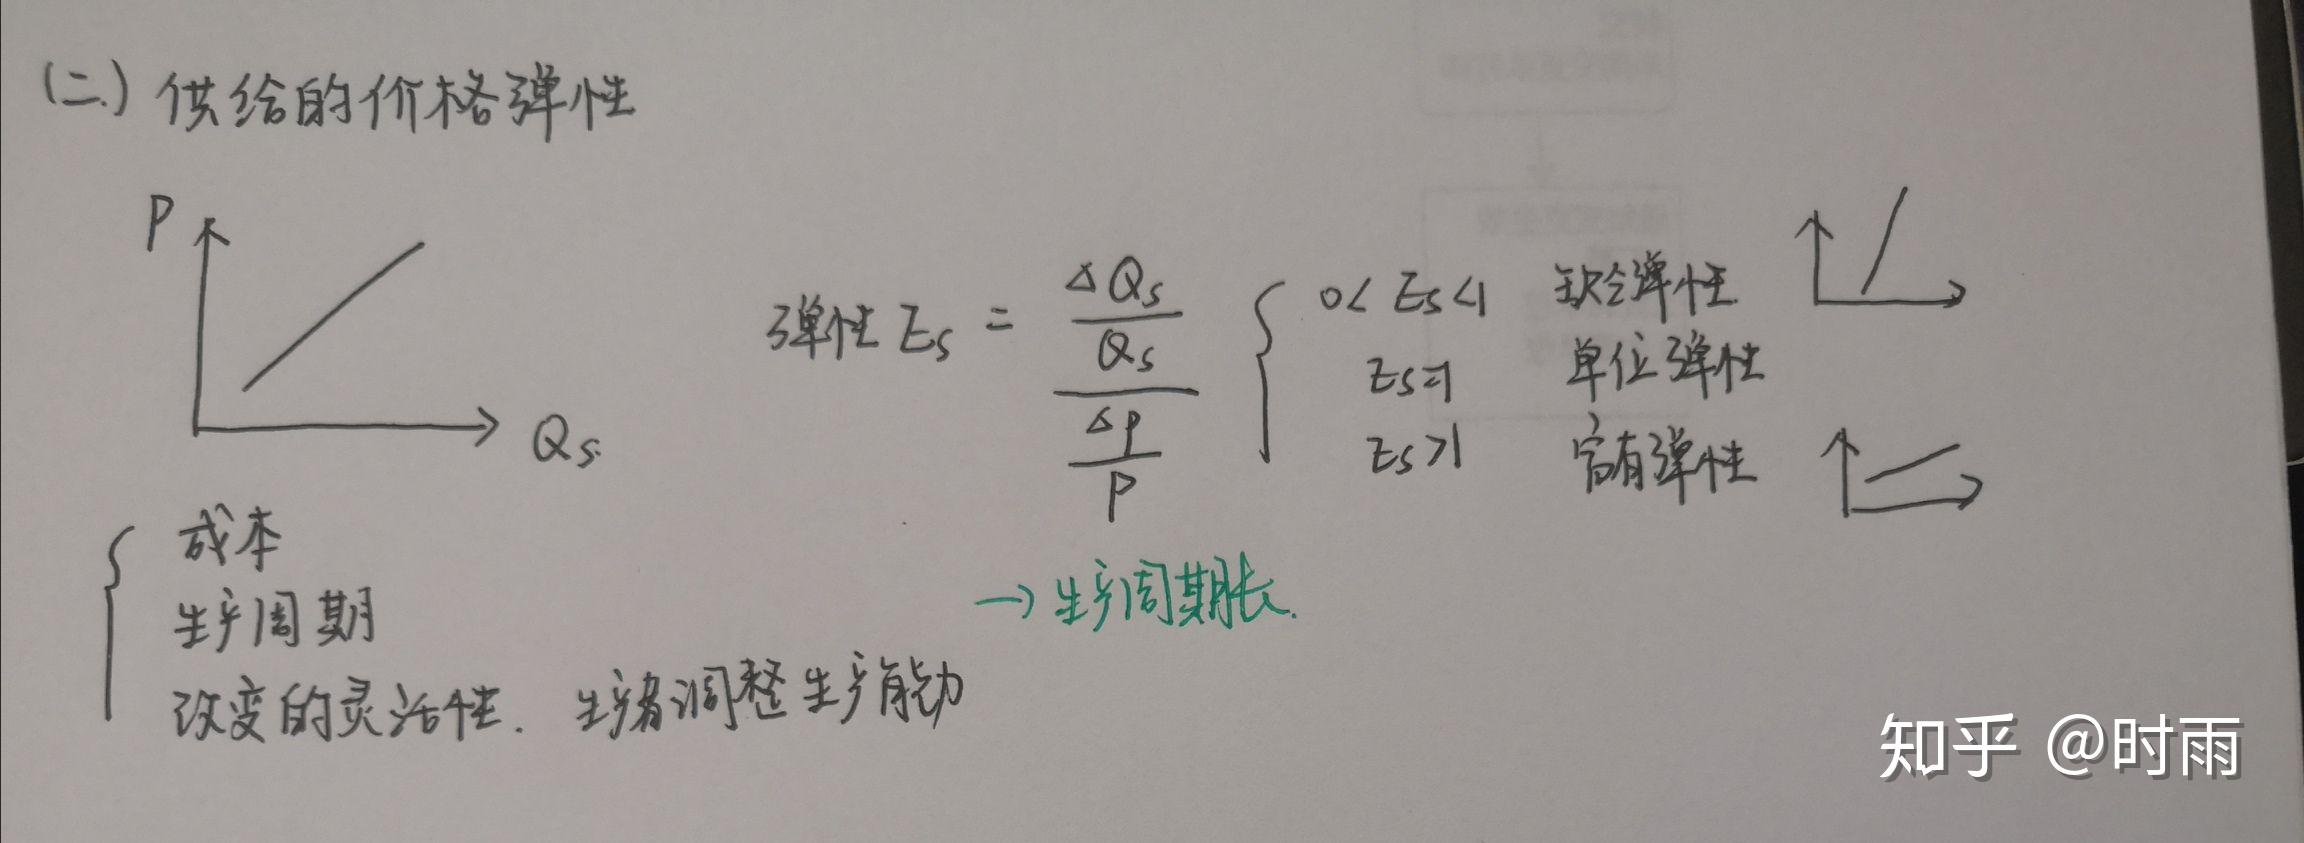 (二) 供给的价格弹性
P
Qs.
弹性 Es = (ΔQs/Qs)/(ΔP/P)
0< Es <1 缺乏弹性
Es=1 单位弹性
Es>1 富有弹性
成本
生产周期
→生产周期长.
改变的灵活性. 生产者调整生产能力
知乎 @时雨